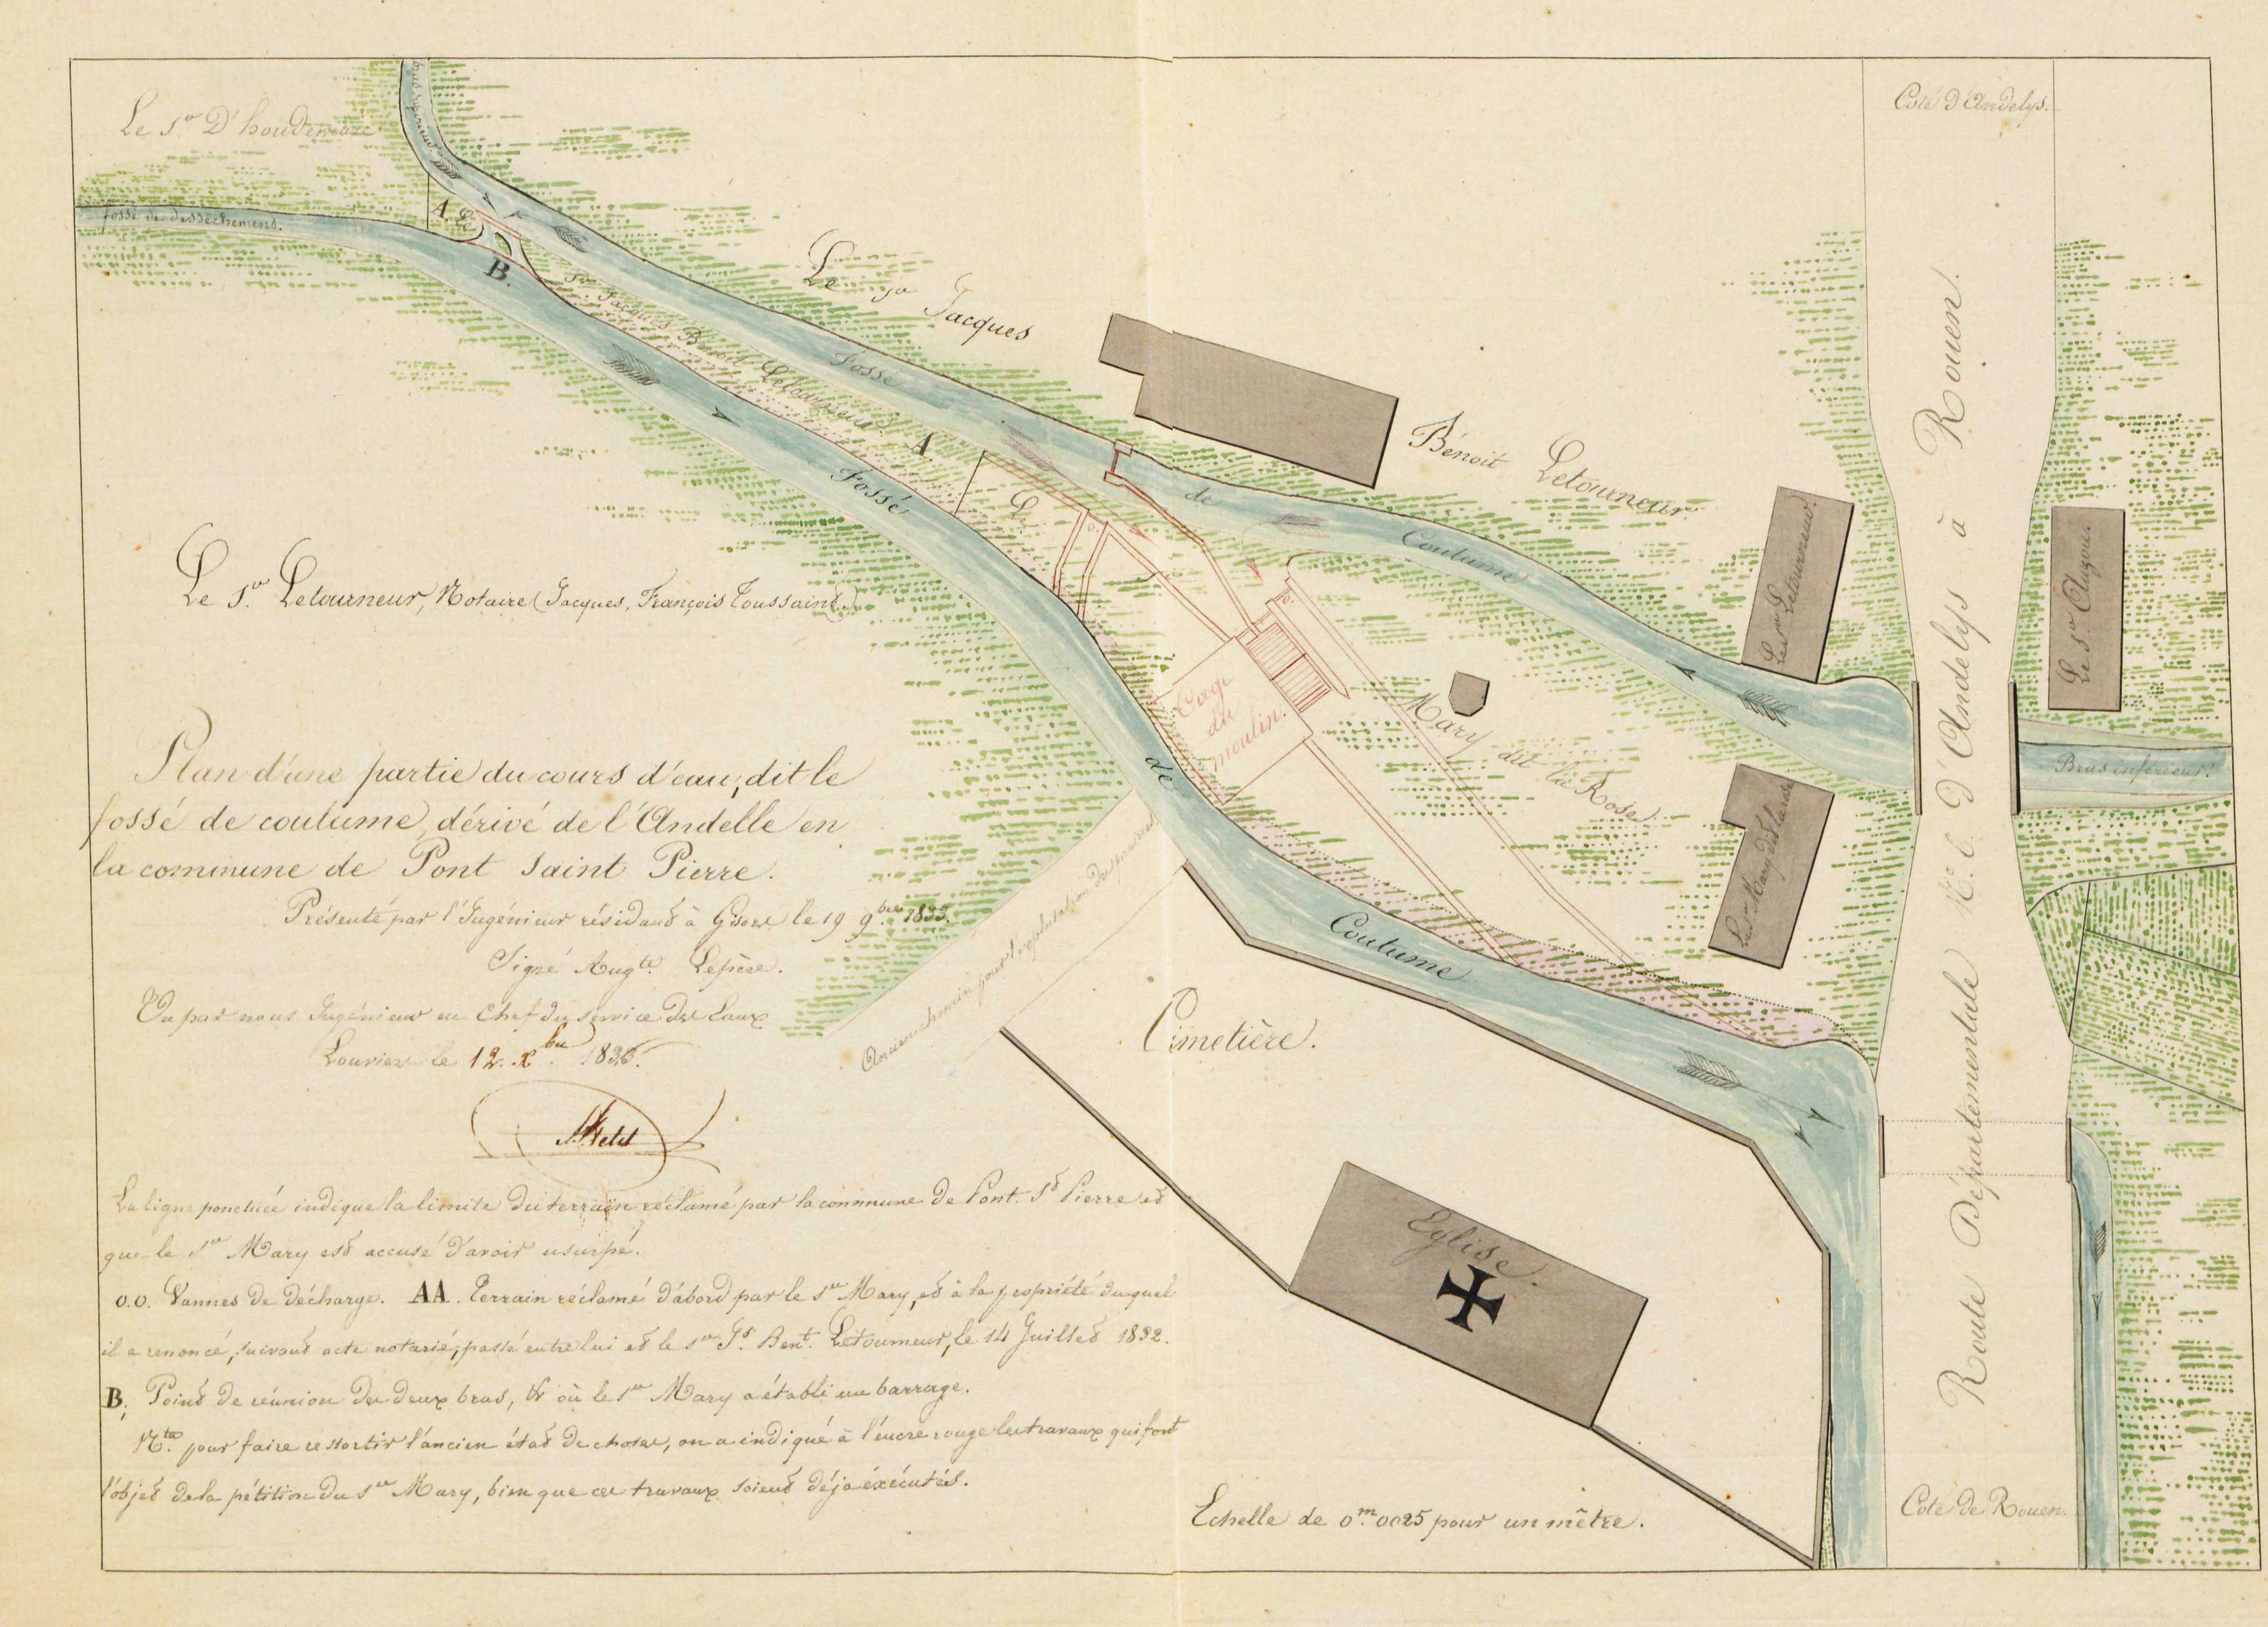 Le Sr D'houdemare
fossé de dessechement.
A.
B.
Sr Jacques Benoit Letourneur
A
Le Sr Jacques
Bénoit Letourneur.
Fossé
de
Coutume
Fossé
de
Coutume
o.
o.
Cage
du
moulin.
Mary dit la Rose.
Le Sr Letourneur.
Le Sr Mary dit larose
Le Sr Auzoux.
Bras inférieur.
Coté d'Andelys.
Route Départementale N.o 6. D'Andelys à Rouen.
Coté de Rouen.
Le Sr Letourneur, Notaire (Jacques, François Toussaint.)
Plan d'une partie du cours d'eau, dit le
fossé de coutume, dérivé de l'Andelle en
la commune de Pont Saint Pierre.
Présenté par l'Ingénieur résidant à Gisors le 19 9bre 1833.
Signé Augte. Lepère.
Vu par nous Ingénieur en Chef du service des Eaux
Louviers le 12. Xbre.
Ancien chemin pour l'exploitation des prairies
Cimetière.
Eglise.
La ligne ponctuée indique la limite du terrain réclamé par la commune de Pont. St Pierre et
que le Sr Mary est accusé d'avoir usurpé.
o.o. Vannes de décharge. AA. Terrain réclamé d'abord par le Sr Mary, et à la propriété duquel
il a renoncé, suivant acte notarié, passé entre lui et le Sr Js. Bent. Letourneur, le 14 Juillet 1832.
B, Point de réunion des deux bras, & où le Sr Mary a établi un barrage.
Nta. pour faire ressortir l'ancien état de choses, on a indiqué à l'encre rouge les travaux qui font
l'objet de la pétition du Sr Mary, bien que ces travaux soient déja éxécutés.
Echelle de 0m.0025 pour un mêtre.